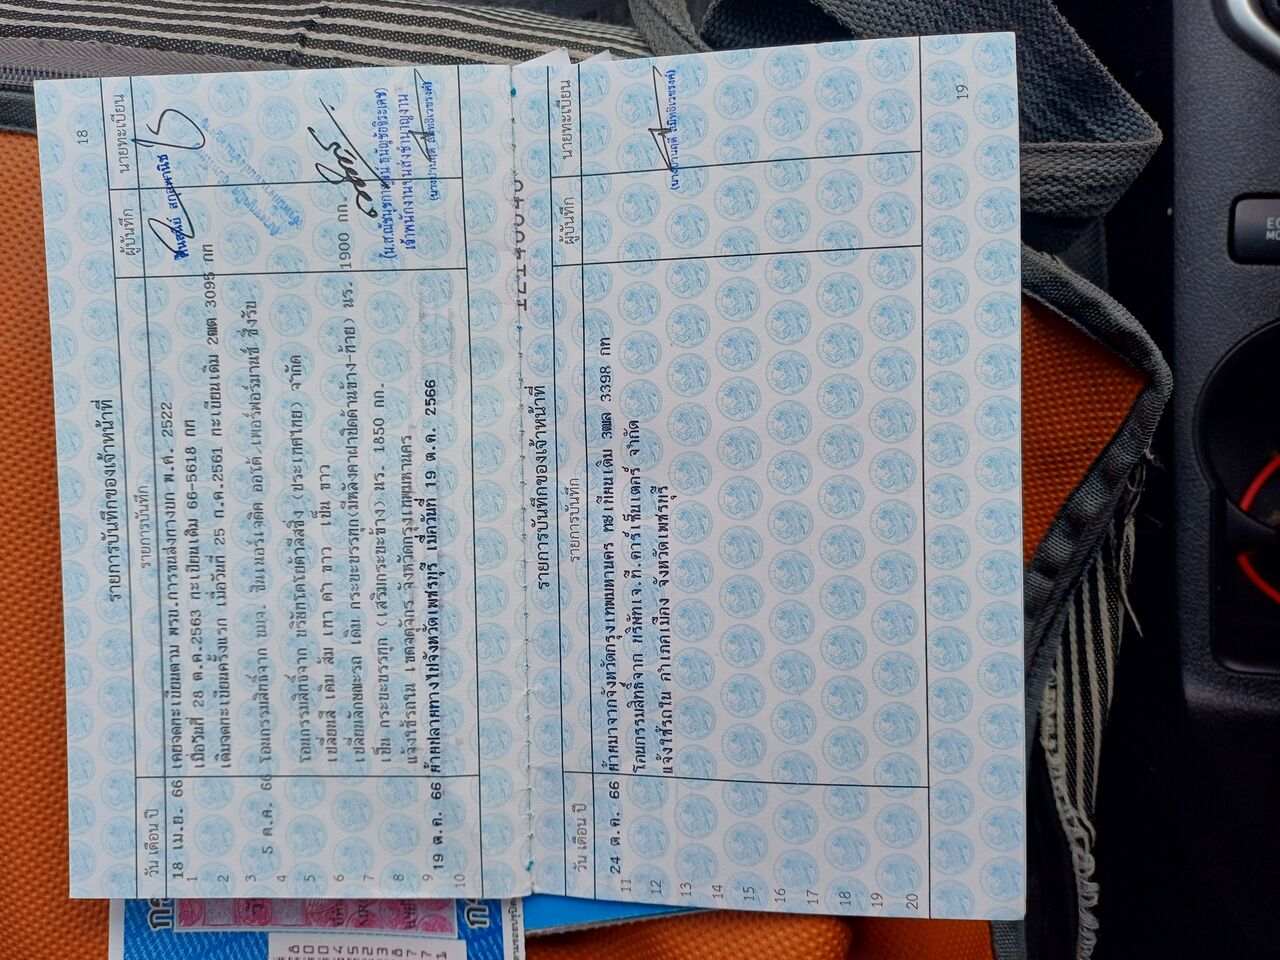 18
รายการบันทึกของเจ้าหน้าที่
วัน เดือน ปี
รายการบันทึก
ผู้บันทึก
นายทะเบียน
18 เม.ย. 66 เคยจดทะเบียนตาม พรบ.การขนส่งทางบก พ.ศ. 2522
1 เมื่อวันที่ 28 ต.ค.2563 ทะเบียนเดิม 66-5618 กท
2 เดิมจดทะเบียนครั้งแรก เมื่อวันที่ 25 ก.ค.2561 ทะเบียนเดิม 2ฒต 3095 กท
3 5 ต.ค. 66 โอนกรรมสิทธิ์จาก บมจ. ซินเนอร์เจติค ออโต้ เพอร์ฟอร์มานซ์ ซึ่งรับ
4 โอนกรรมสิทธิ์จาก บริษัทโตโยต้าลีสซิ่ง (ประเทศไทย) จำกัด
5 เปลี่ยนสี เดิม ส้ม เทา ดำ ขาว เป็น ขาว
6 เปลี่ยนลักษณะรถ เดิม กระบะบรรทุก(มีหลังคาฝาปิดด้านข้าง-ท้าย) นร. 1900 กก.
7 เป็น กระบะบรรทุก (เสริมกระบะข้าง) นร. 1850 กก.
8 แจ้งใช้รถใน เขตจตุจักร จังหวัดกรุงเทพมหานคร
9 19 ต.ค. 66 ย้ายปลายทางไปจังหวัดเพชรบุรี เมื่อวันที่ 19 ต.ค. 2566
10
สกุลพานิช
เจ้าพนักงานขนส่งชำนาญงาน
รายการบันทึกของเจ้าหน้าที่
วัน เดือน ปี
รายการบันทึก
ผู้บันทึก
นายทะเบียน
24 ต.ค. 66 ย้ายมาจากจังหวัดกรุงเทพมหานคร ทะเบียนเดิม 3ฒล 3398 กท
11 โอนกรรมสิทธิ์จาก บริษัทเจ.ที.คาร์เซ็นเตอร์ จำกัด
12 แจ้งใช้รถใน อำเภอเมือง จังหวัดเพชรบุรี
13
14
15
16
17
18
19
20
19